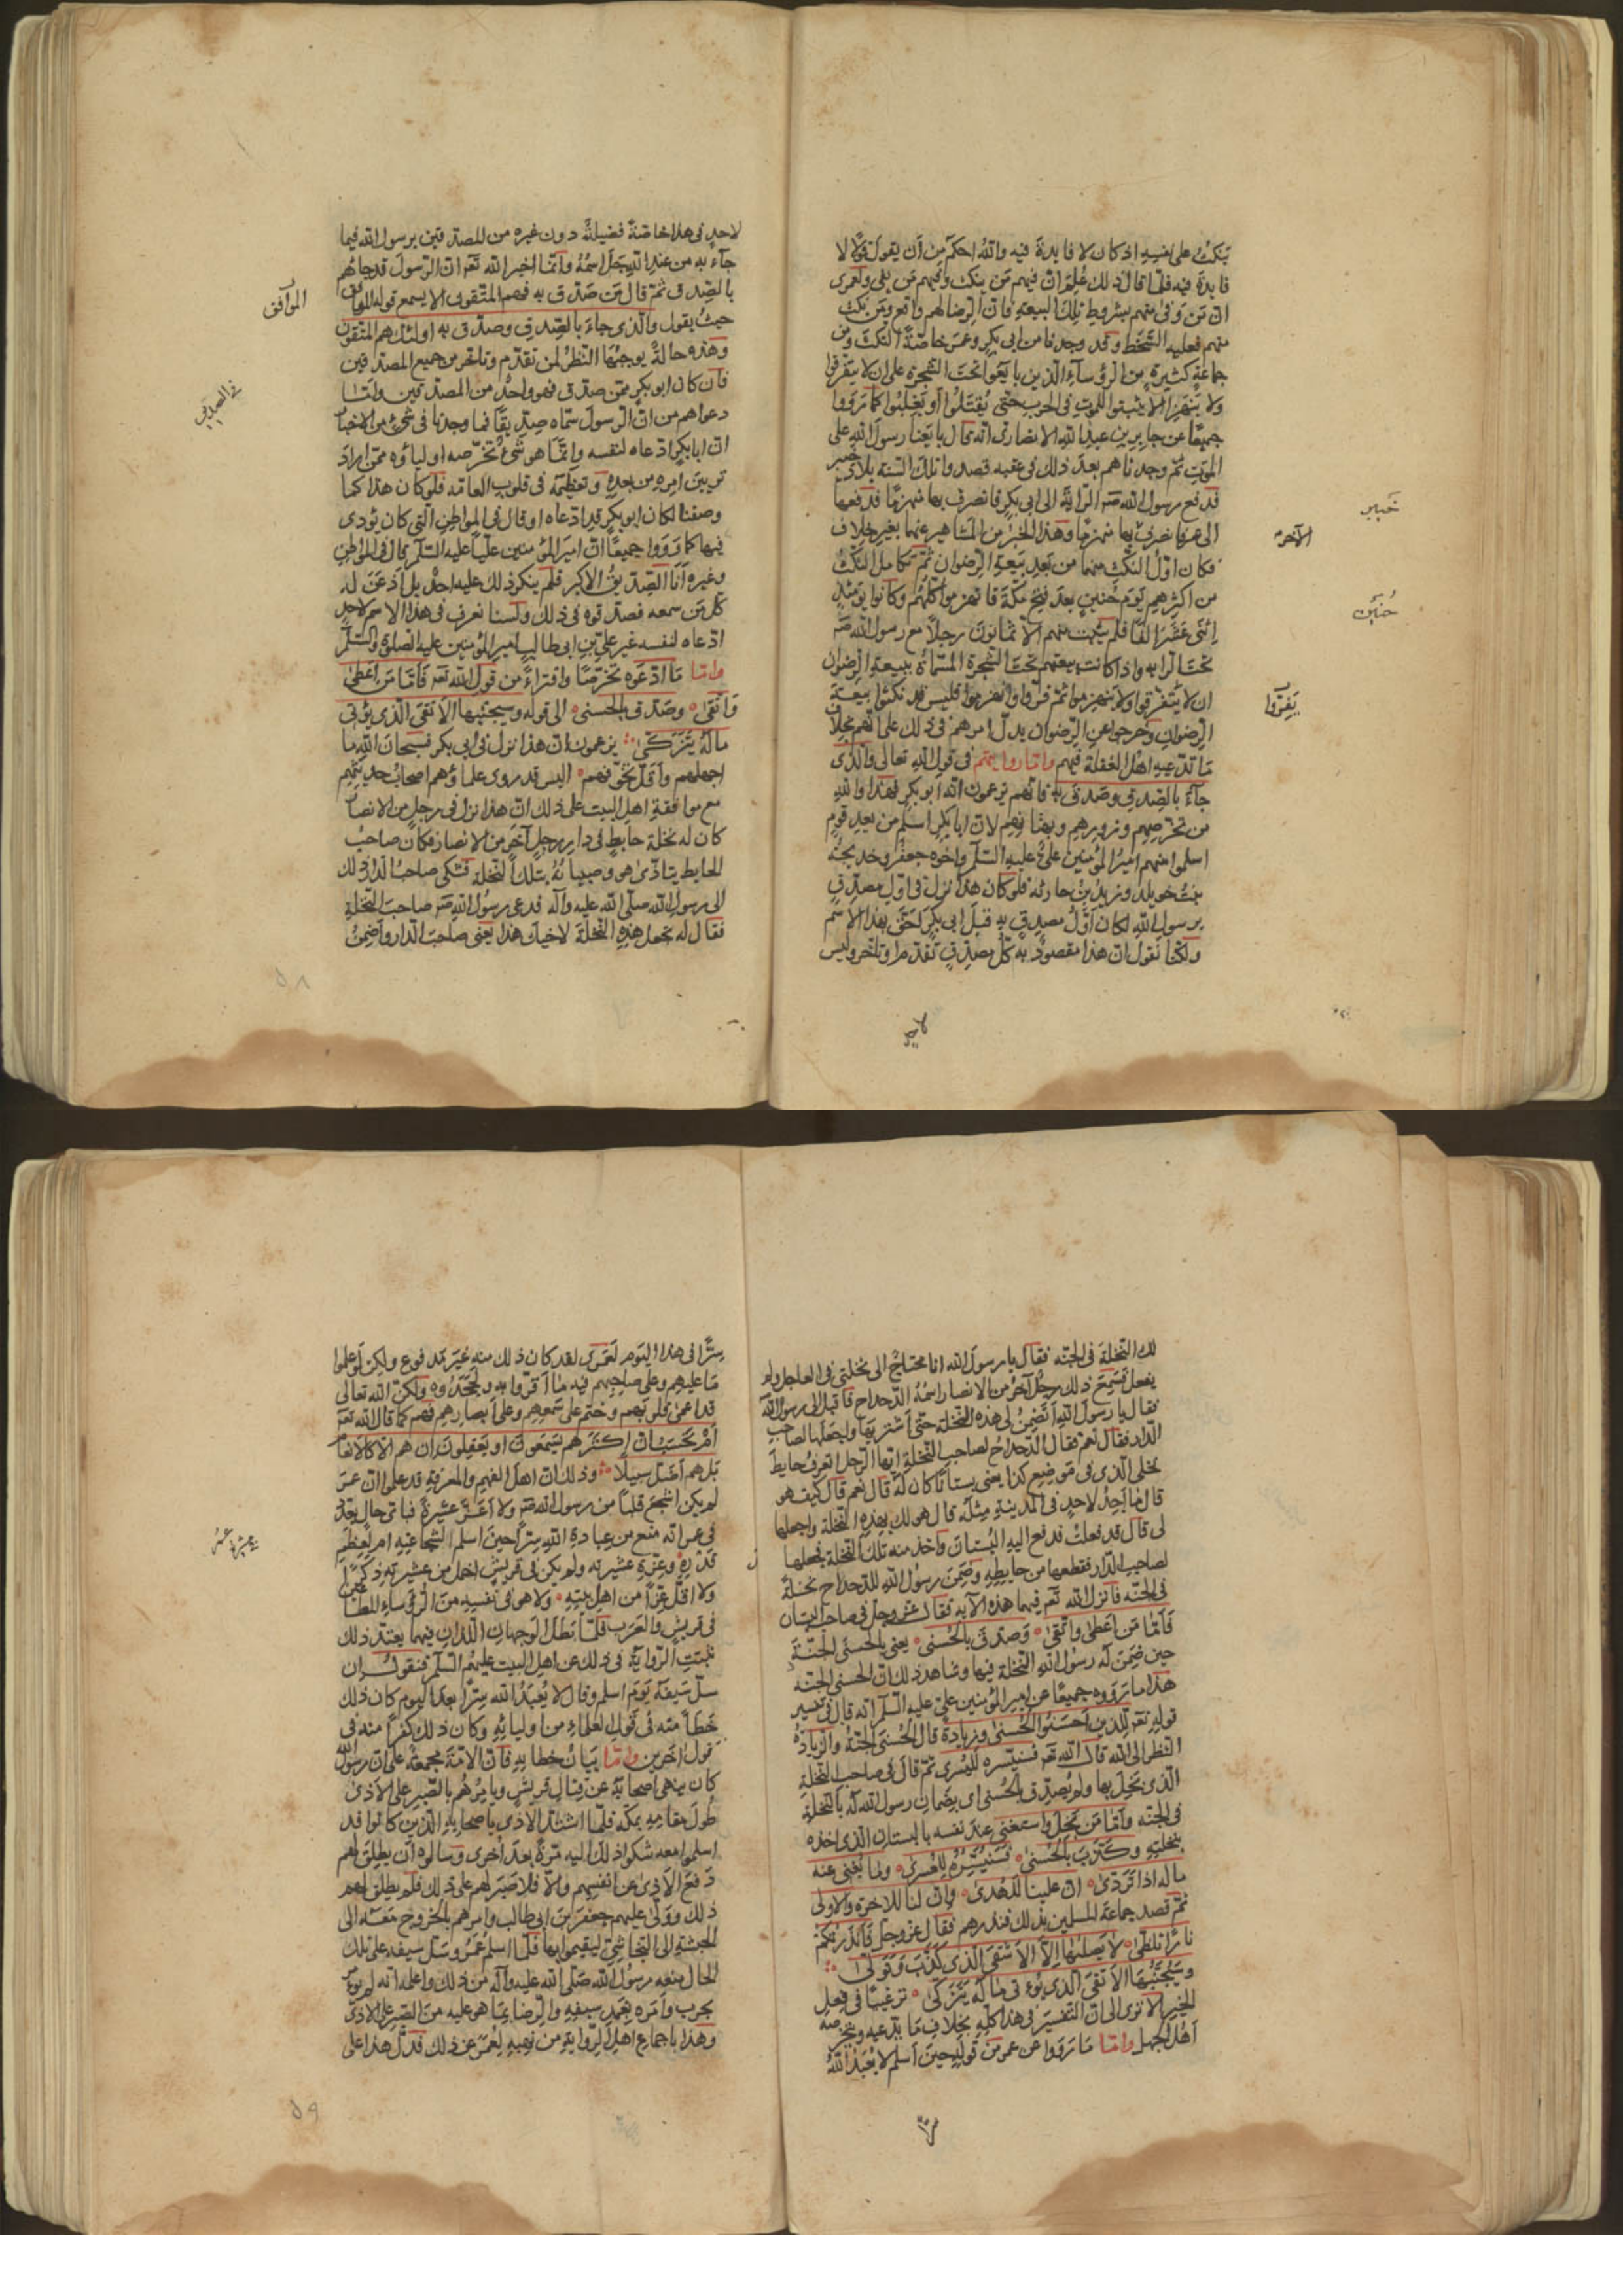 ينكث على نفسه اذ كان لا فايدة فيه والله احكم من أن يقول قولا لا
فايدة فيه فلما قال ذلك علم ان فيهم من ينكث وفيهم من يفى ولعمرى
ان من وفى منهم بشروط تلك البيعة فان الرضا لهم واقع ومن نكث
منهم فعليه السخط وقد وجدنا من ابى بكر وعمر خاصة النكث ومن
جماعة كثيرة من الرؤسآء الذين بايعوا تحت الشجرة على ان لا يتفرقوا
ولا ينهزموا ويثبتوا للموت فى الحرب حتى يقتلوا أو يغلبوا كما رووا
جميعا عن جابر بن عبد الله الانصارى انه قال بايعنا رسول الله على
الموت ثم وجدناهم بعد ذلك فى عقبه قصدوا تلك السنة بلاد خيبر
فدفع رسول الله صَه الراية الى ابى بكر فانصرف بها منهزما فدفعها
الى عمر فانصرف بها منهزما وهذا الخبر من المشاهير عنهما بغير خلاف
فكان اول النكث منهما من بعد بيعة الرضوان ثم تكامل النكث
من اكثرهم يوم حنين بعد فتح مكة فانهزموا كلهم وكانوا يومئذ
إثنى عشر الفا فلم يثبت منهم الا ثمانون رجلا مع رسول الله صَه
تحت الرايه واذا كانت بيعتهم تحت الشجرة المسماة ببيعة الرضوان
ان لا يتفرقوا ولا ينهزموا ثم فروا وانهزموا فليس قد نكثوا بيعة
الرضوان وخرجوا عن الرضوان يدل امرهم فى ذلك على انهم بخلاف
ما تدعيه اهل الغفلة فيهم واما روايتهم فى قول الله تعالى والذى
جآء بالصدق وصدق به فانهم يزعمون انه ابو بكر فهذا والله
من تخرصهم وزورهم وبهتانهم لان ابا بكر اسلم من بعد قوم
اسلموا منهم امير المؤمنين على عليه السلم واخوه جعفر وخديجة
بنت خويلد وزيد بن حارثه فلو كان هذا نزل فى اول مصدق
برسول الله لكان اول مصدق به قبل ابى بكر احق بهذا الاسم
ولكنا نقول ان هذا مقصود به كل مصدق تقدم او تاخر وليس
لاحد
خيبر
الآخر
حنين
يفروا
لاحد فى هذا خاصة فضيلة دون غيره من المصدقين برسول الله فيما
جآء به من عند الله جل اسمه وانما اخبر الله تعَه ان الرسول قد جاءهم
بالصدق ثم قال من صدق به فهم المتقون الا يسمع قوله الموافق
حيث يقول والذى جاء بالصدق وصدق به اولئك هم المتقون
وهذه حالة يوجبها النظر لمن تقدم وتاخر من جميع المصدقين
فان كان ابو بكر ممن صدق فهو واحد من المصدقين وامّا
دعواهم من ان الرسول سماه صديقا فما وجدنا فى شئ من الاخبار
ان ابا بكر ادعاه لنفسه وانما هو شئ تخرصه اولياؤه ممن اراد
تزيين امره من بعده وتعظيمه فى قلوب العامه فلو كان هذا كما
وصفنا لكان ابو بكر قد ادعاه او قال فى المواطن التى كان يؤدى
فيها كما رووا جميعا ان امير المؤمنين عليا عليه السلم قال فى المواطن
وغيره أنا الصديق الاكبر فلم ينكر ذلك عليه احد بل اذعن له
كل من سمعه فصدقوه فى ذلك ولسنا نعرف فى هذا الاسم لاحد
ادعاه لنفسه غير على بن ابى طالب امير المؤمنين عليه الصلوة والسلم
واما ما ادعوه تخرصا وافتراء من قول الله تعَه فاما من اعطى
واتقى وصدق بالحسنى الى قوله وسيجنبها الاتقى الذى يؤتى
ماله يتزكى يزعمون ان هذا نزل فى ابى بكر فسبحان الله ما
اجهلهم واقل تخوفهم اليس قد روى علماؤهم اصحاب حديثهم
مع موافقة اهل البيت على ذلك ان هذا نزل فى رجل من الانصار
كان له نخلة حايط فى دار رجل آخر من الانصار فكان صاحب
الحايط يتاذى هو وصبيانه بتلك النخلة فشكى صاحب الدار ذلك
الى رسول الله صلى الله عليه وآله فدعى رسول الله صَه صاحب النخلة
فقال له تجعل هذه النخلة لاخيك هذا يعنى صاحب الدار واضمن
الموآفق
٥٨
لك النخلة فى الجنه فقال يا رسول الله انا محتاج الى نخلتى فى العاجل ولم
يفعل فسمع ذلك رجل آخر من الانصار اسمه الدحداح فاقبل الى رسول الله
فقال يا رسول الله أتضمن لى هذه النخلة حتى أشتريها واجعلها لصاحب
الدار فقال نعم فقال الدحداح لصاحب النخلة ايها الرجل اتعرف حايط
نخلى الذى فى موضع كذا يعنى بستانا كان له قال نعم قال كيف هو
قال ما اجد لاحد فى المدينة مثله قال هو لك بهذه النخلة واجعلها
لى قال قد فعلت فدفع اليه البستان واخذ منه تلك النخلة فجعلها
لصاحب الدار فقطعها من حايطه وضمن رسول الله للدحداح نخلة
فى الجنه فانزل الله تعَه فيهما هذه الآيه فقال عز وجل فى صاحب البستان
فاما من اعطى واتقى وصدق بالحسنى يعنى بالحسنى الجنة
حين ضمن له رسول الله النخلة فيها وشاهد ذلك ان الحسنى الجنة
هذا ما رووه جميعا عن امير المؤمنين على عليه السلم انه قال فى تفسير
قوله تعَه للذين احسنوا الحسنى وزيادة قال الحسنى الجنة والزيادة
النظر الى الله قال الله تعَه فسنيسره لليسرى ثم قال فى صاحب النخلة
الذى بخل بها ولم يصدق بالحسنى اى بضمان رسول الله له بالنخلة
فى الجنه واما من بخل واستغنى عند نفسه بالبستان الذى اخذه
بنخلته وكذب بالحسنى فسنيسره للعسرى وما يغنى عنه
ماله اذا تردى ان علينا للهدى وان لنا للاخرة والاولى
ثم قصد جماعة المسلمين بذلك فنذرهم فقال عز وجل فانذرتكم
نارا تلظى لا يصليها الا الاشقى الذى كذب وتولى
وسيجنبها الاتقى الذى يؤتى ماله يتزكى ترغيبا فى فعل
الخير الا ترى الى ان التفسير فى هذا كله بخلاف ما يدعيه ويتخرصه
اهل الجهل واما ما رووا عن عمر من قوله حين اسلم لا يعبد الله
سرا
سرا فى هذا اليوم لعمرى لقد كان ذلك منه غير مدفوع ولكن لو علموا
ما عليهم وعلى صاحبهم فيه ما اقروا به ولجحدوه ولكن الله تعالى
قد اعمى قلوبهم وختم على سمعهم وعلى ابصارهم فهم كما قال الله تعَه
أم تحسب ان اكثرهم يسمعون او يعقلون ان هم الا كالانعام
بل هم اضل سبيلا وذلك ان اهل الفهم والمعرفة قد علموا ان عمر
لم يكن اشجع قلبا من رسول الله صَه ولا اعز عشيرة فباى حال
فى عمر انه منع من عبادة الله سرا حين اسلم الشجاعته ام لعظم
قدره وعزة عشيرته ولم يكن فى قريش اخمل من عشيرته ذكرا
ولا اقل عزا من اهل بيته ولا هو فى نفسه من الرؤساء المطاعين
فى قريش والعرب فلما بطل الوجهان اللذان فيهما يعتد ذلك
ثبتت الرواية فى ذلك عن اهل البيت عليهم السلم فنقول ان
سل سيفه يوم اسلم وقال لا يعبد الله سرا بعد اليوم كان ذلك
خطأ منه فى قول العلماء من اوليائه وكان ذلك كفرا منه فى
قول آخرين واما بيان خطايه فان الامة مجمعة على ان رسول الله
كان ينهى اصحابه عن قتال قريش ويامرهم بالصبر على الاذى
طول مقامه بمكة فلما اشتد الاذى باصحابه الذين كانوا قد
اسلموا معه شكوا ذلك اليه مرة بعد أخرى وسالوه ان يطلق لهم
دفع الاذى عن انفسهم والا فلا صبر لهم على ذلك فلم يطلق لهم
ذلك وولى عليهم جعفر بن ابى طالب وامرهم بالخروج معه الى
الحبشة الى النجاشى ليقيموا بها فلما اسلم عمر وسل سيفه على تلك
الحال منعه رسول الله صلى الله عليه وآله من ذلك واعلمه انه لم يؤمر
بحرب وامره بغمد سيفه والرضا بما هو عليه من الصبر على الاذى
وهذا باجماع اهل الرواية من نهيه لعمر عن ذلك فدل هذا على
٥٩